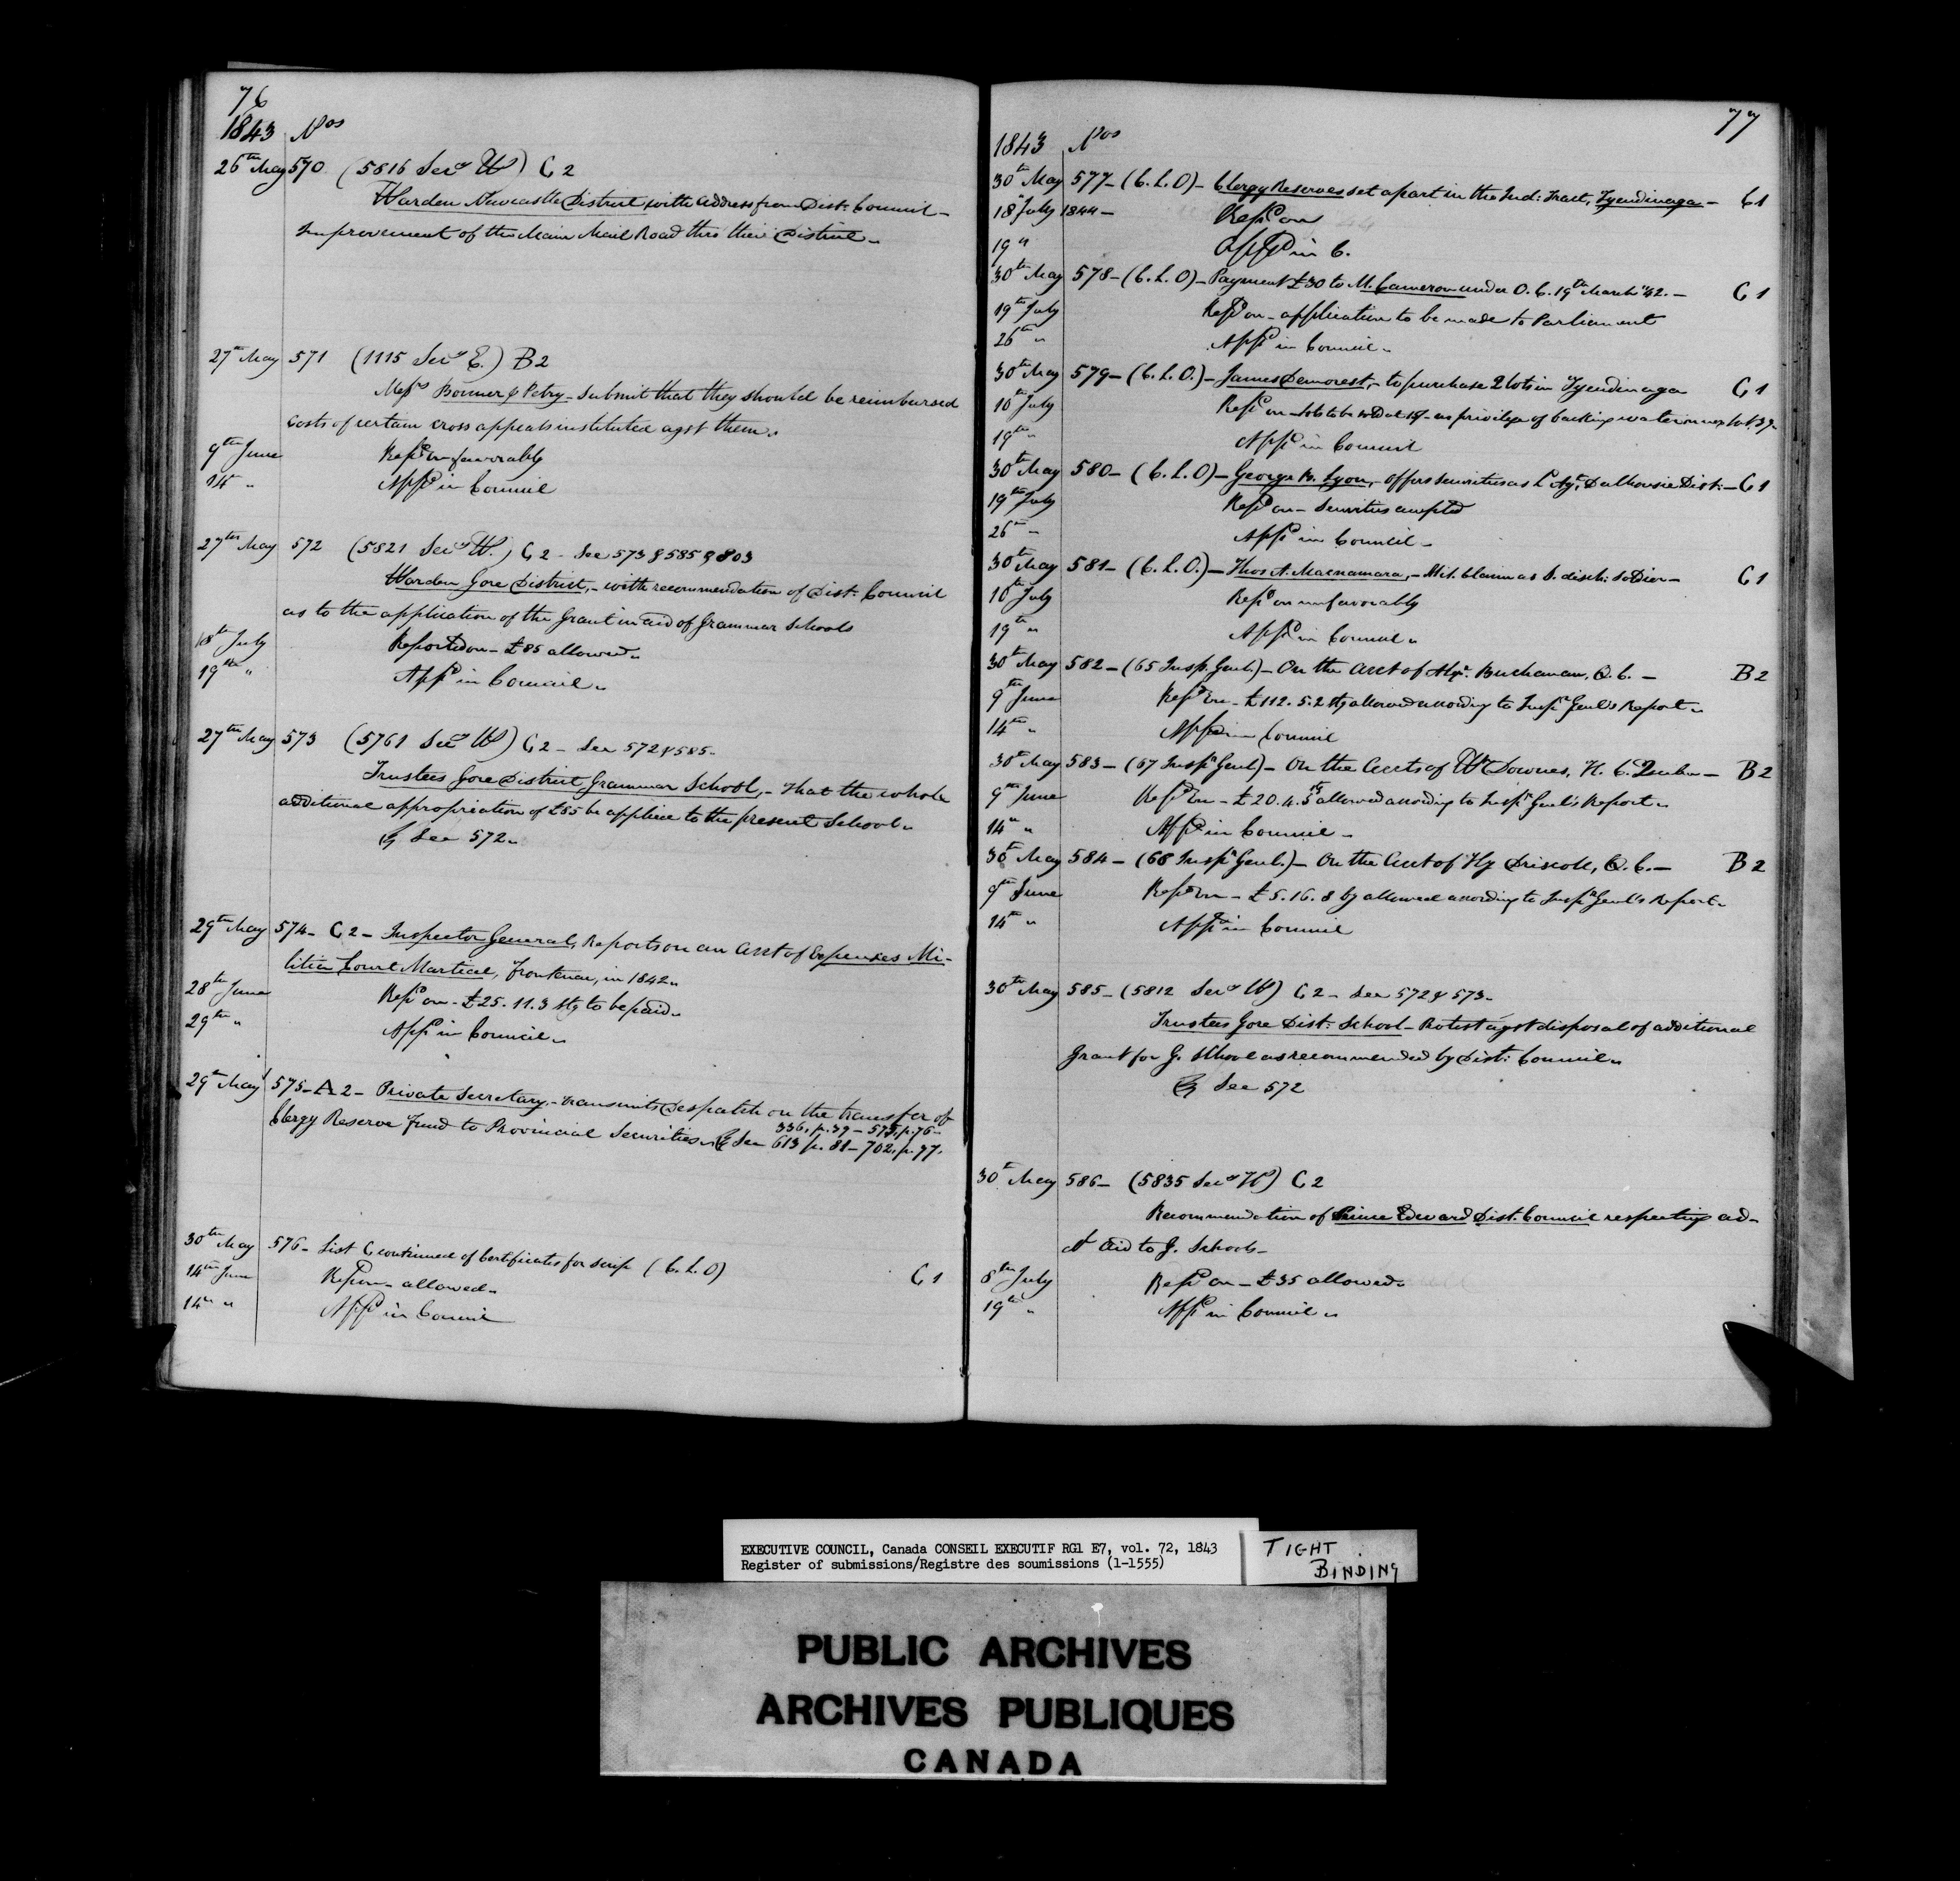 76
1843 Nos
26th May 570 (5816 Secy W) C 2
Warden Newcastle District with address from Dist: Council -
Improvement of the Main Mail Road thro their District.
27th May 571 (1115 Secy E.) B2
Messrs Bonner & Petry - submit that they should be reimbursed
costs of certain cross appeals instituted agst them.
9th June Repd on favorably
14 " Appd in Council
27th May 572 (5821 Secy W.) C 2 - See 573 & 585 & 803
Warden Gore District, - with recommendation of Dist: Council
as to the application of the Grant in aid of Grammar Schools
18th July Reported on - £85 allowed.
19th " Appd in Council.
27th May 573 (5761 Secy W) C 2 - See 572 & 585.
Trustees Gore District Grammar School, - that the whole
additional appropriation of £85 be applied to the present School.
See 572.
29th May 574 - C 2 - Inspector General, Reports on an acct of Expenses Mi-
litia Court Martial, Frontenac, in 1842.
28th June Repd on - £25.11.3 stg to be paid.
29th " Appd in Council.
29th May 575 - A 2 - Private Secretary, - transmits Despatch on the transfer of
Clergy Reserve Fund to Provincial Securities. See 613 p. 81 - 702, p. 97.
336, p. 39 - 575, p. 76 -
30th May 576 - List C continued of Certificates for scrip (C. L. O) C 1
14th June Repd on - allowed.
14th " Appd in Council
77
1843 Nos
30th May 577 - (C. L. O) - Clergy Reserves set apart in the Ind: Tract, Tyendinaga - C 1
18 July 1844 - Repd on
19 " Appd in C.
30th May 578 - (C. L. O) - Payment £30 to M. Cameron under O. C. 19th March '42. - C 1
19th July Repd on - application to be made to Parliament
26th " Appd in Council.
30th May 579 - (C. L. O.) - James Demorest, - to purchase 2 lots in Tyendinaga C 1
10th July Repd on - lots to be sold at - no privilege of backing water on lot 39.
19th " Appd in Council
30th May 580 - (C. L. O) - George B. Lyon, - offers securities as L. Agt. Dalhousie Dist: - C 1
19th July Repd on - Securities accepted
26th " Appd in Council -
30th May 581 - (C. L. O.) - Thos A. Macnamara, - Mil. Claim as D. disch: soldier - C 1
10th July Repd on unfavorably
19th " Appd in Council.
30th May 582 - (65 Insp. Genl.) - On the acct of Alexr. Buchanan, Q. C. - B 2
9th June Repd on - £112.5.2 stg allowed according to Inspr Genl's Report.
14th " Appd in Council
30th May 583 - (67 Inspr Genl) - On the accts of Wm Downes, H. C. Quebec - B 2
9th June Repd on - £20.4.5 stg allowed according to Inspr Genl's Report.
14th " Appd in Council -
30th May 584 - (68 Inspr Genl.) - On the acct of Hy Driscoll, Q. C. - B 2
9th June Repd on - £5.16.8 stg allowed according to Inspr Genl's Report.
14th " Appd in Council
30th May 585 - (5812 Secy W) C 2 - See 572 & 573 -
Trustees Gore Dist: School - Protest agst disposal of additional
Grant for G. School as recommended by Dist: Council.
See 572
30th May 586 - (5835 Secy W) C 2
Recommendation of Prince Edward Dist. Council respecting ad-
dl aid to G. Schools -
8th July Repd on - £35 allowed.
19th " Appd in Council.
EXECUTIVE COUNCIL, Canada CONSEIL EXECUTIF RG1 E7, vol. 72, 1843
Register of submissions/Registre des soumissions (1-1555)
TIGHT
BINDING
PUBLIC ARCHIVES
ARCHIVES PUBLIQUES
CANADA